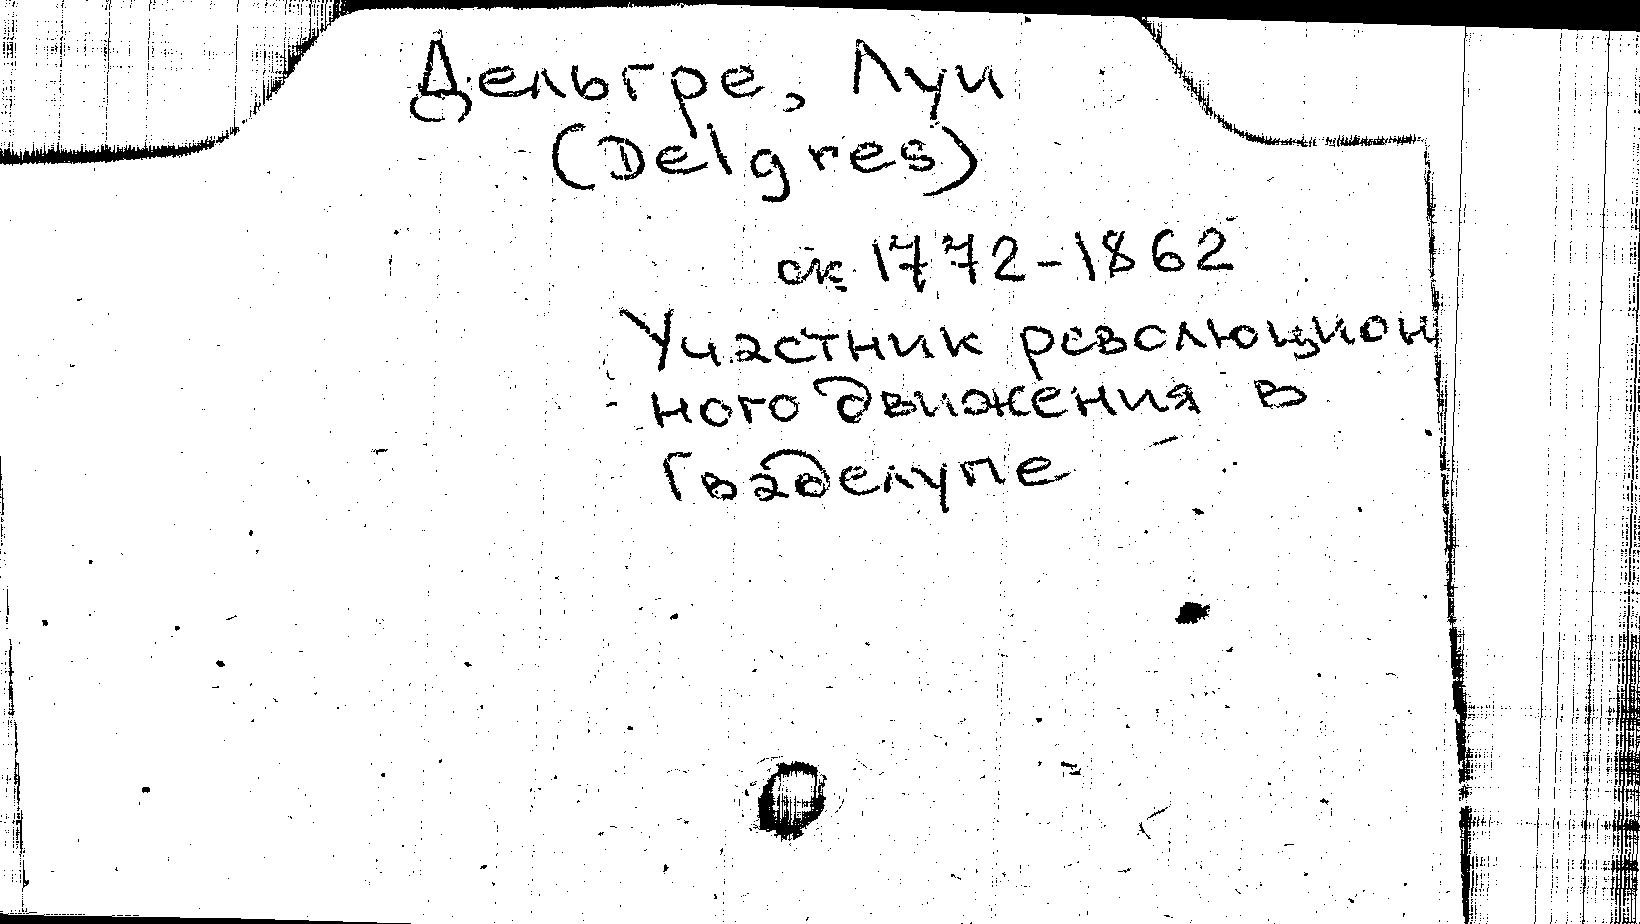 Дельгре, Луи
(Delgres)
ок. 1772-1862
Участник революцион
ного движения в
Гваделупе